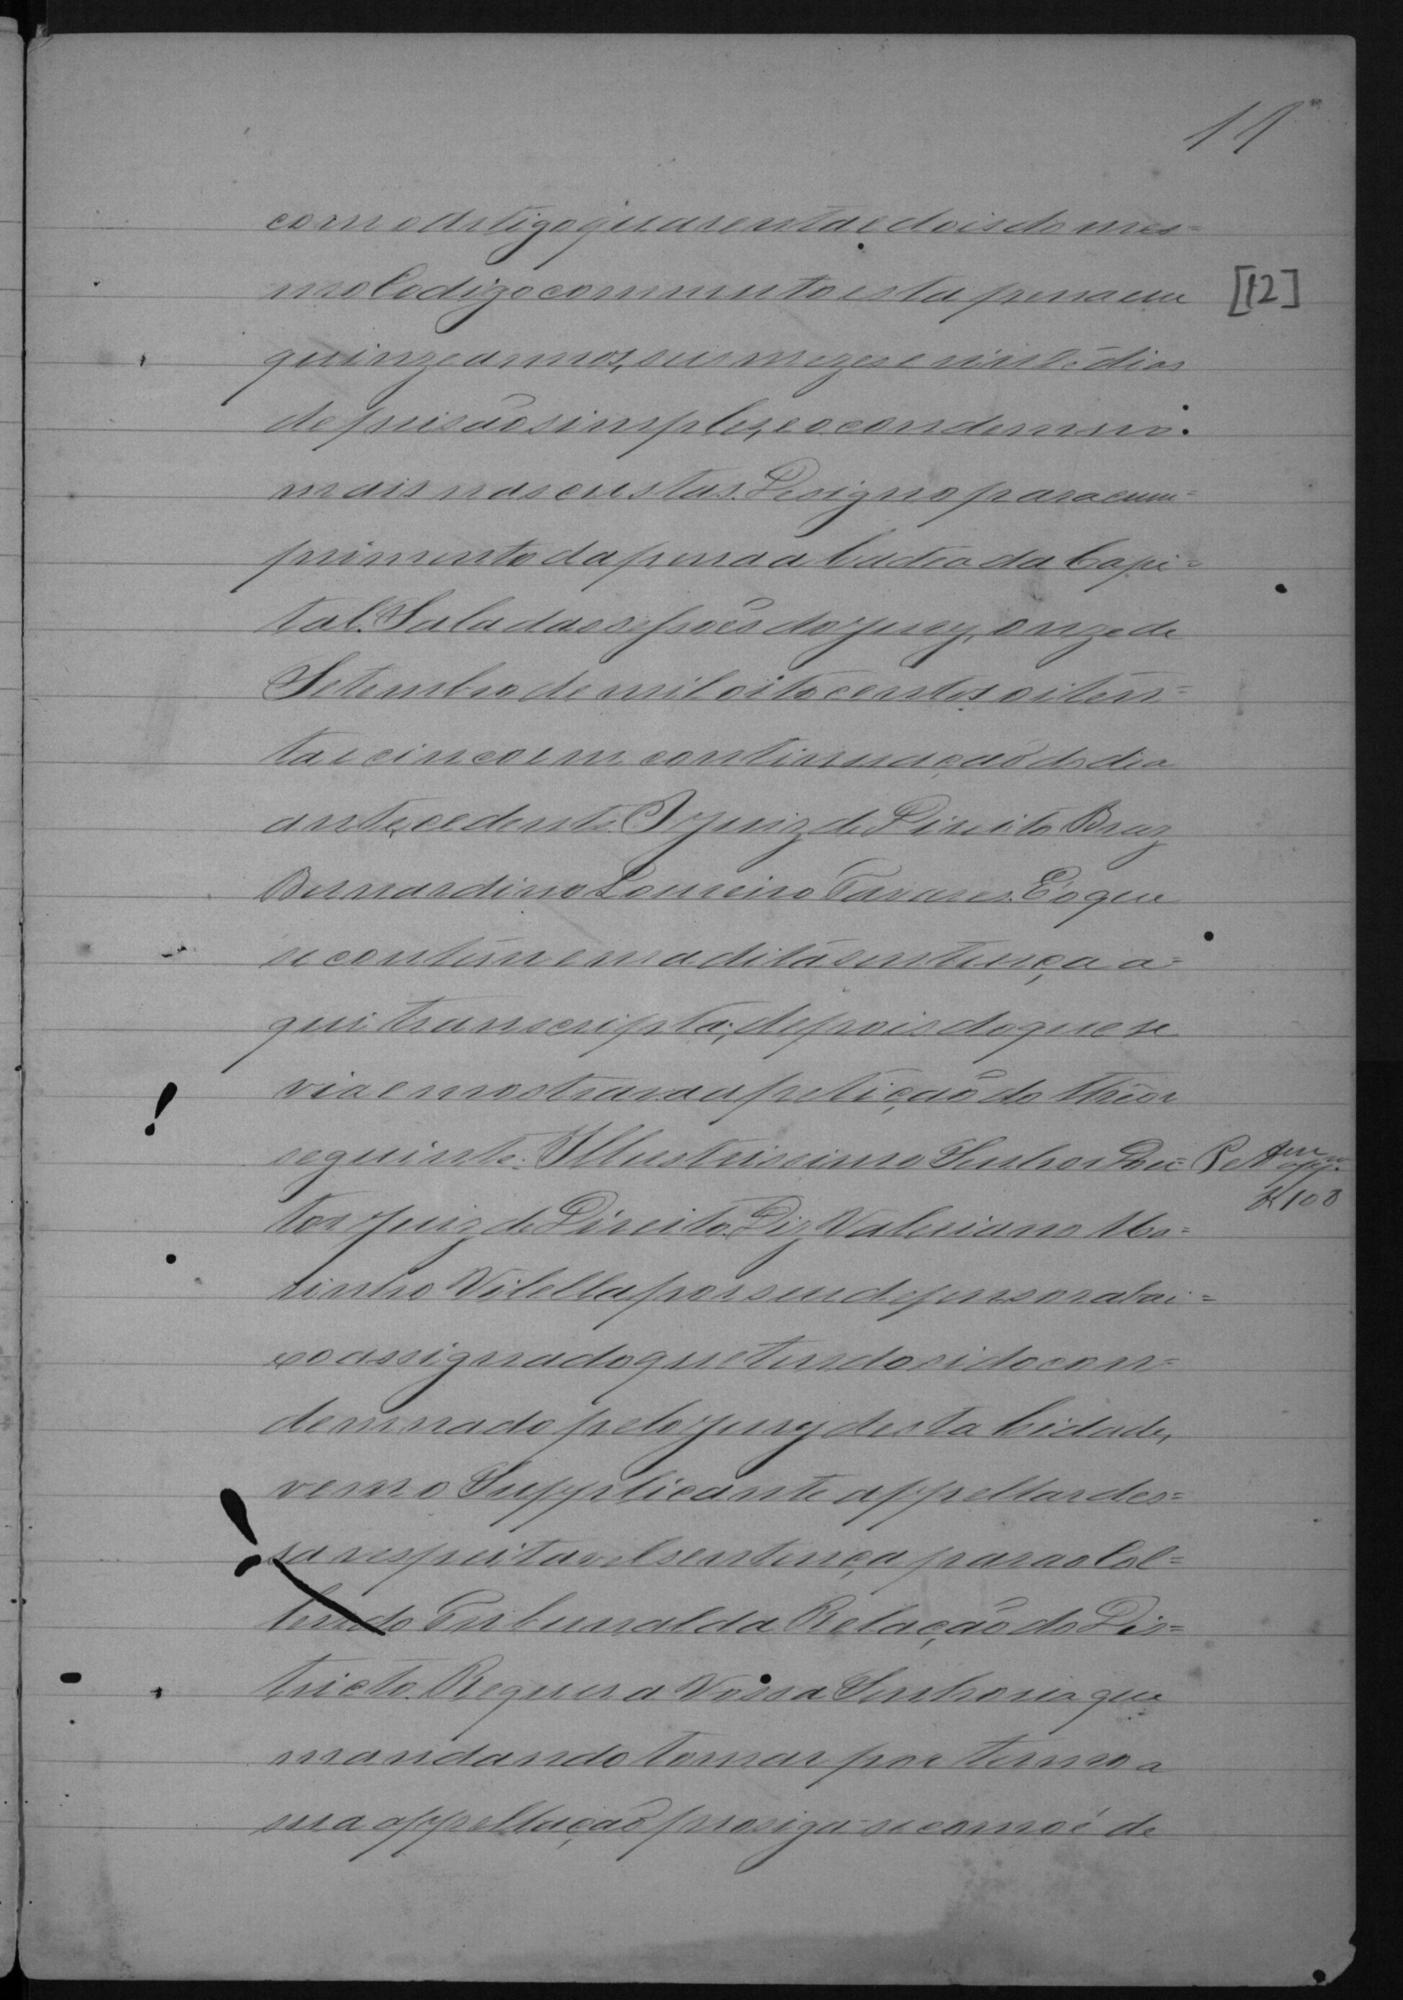 11
com o Artigo quarenta e dois do mes=
mo Codigo commuto esta pena em
[12]
quinze annos, seis mezes e vinte dias
de prisão simples, e o condemno
mais nas custas. Designo para cum=
primento da pena a Cadea da Capi=
tal. Sala das sessões do jury, onze de
Setembro de mil oito centos oiten=
ta e cinco em continuação do dia
antecedente. O Juiz de Direito Braz
Bernardino Loureiro Tavares. É o que
se contém em a dita sentença a=
qui transcripta; depois do que se
via e mostrava a petição do theor
seguinte: Illustrissimo Senhor Dou=
tor Juiz de Direito. Diz Valeriano Mo=
rinho Vilella por seu defensor abai=
xo assignado que tendo sido con=
demnado pelo Jury desta Cidade,
vem o Supplicante appellar des=
sa respeitavel sentença para o Col=
lendo Tribunal da Relação do Dis=
tricto. Requer a Vossa Senhoria que
mandando tomar por termo a
sua appellação prosiga-se como é de